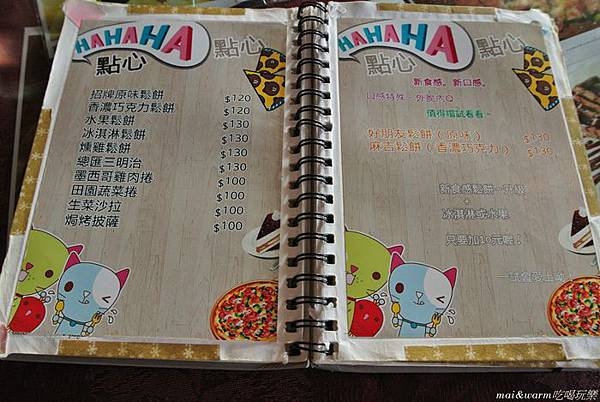 HAHAHA 點心
點心
招牌原味鬆餅 $120
香濃巧克力鬆餅 $120
水果鬆餅 $130
冰淇淋鬆餅 $130
燻雞鬆餅 $130
總匯三明治 $130
墨西哥雞肉捲 $100
田園蔬菜捲 $100
生菜沙拉 $100
焗烤披薩 $100
HAHAHA 點心
點心
新食感。新口感。
口感特殊、外脆內Q
值得嚐試看看~
好朋友鬆餅（原味） $130
麻吉鬆餅（香濃巧克力） $130
新食感鬆餅、升級
+
冰淇淋或水果
只要加10元喔！
mai&warm吃喝玩樂